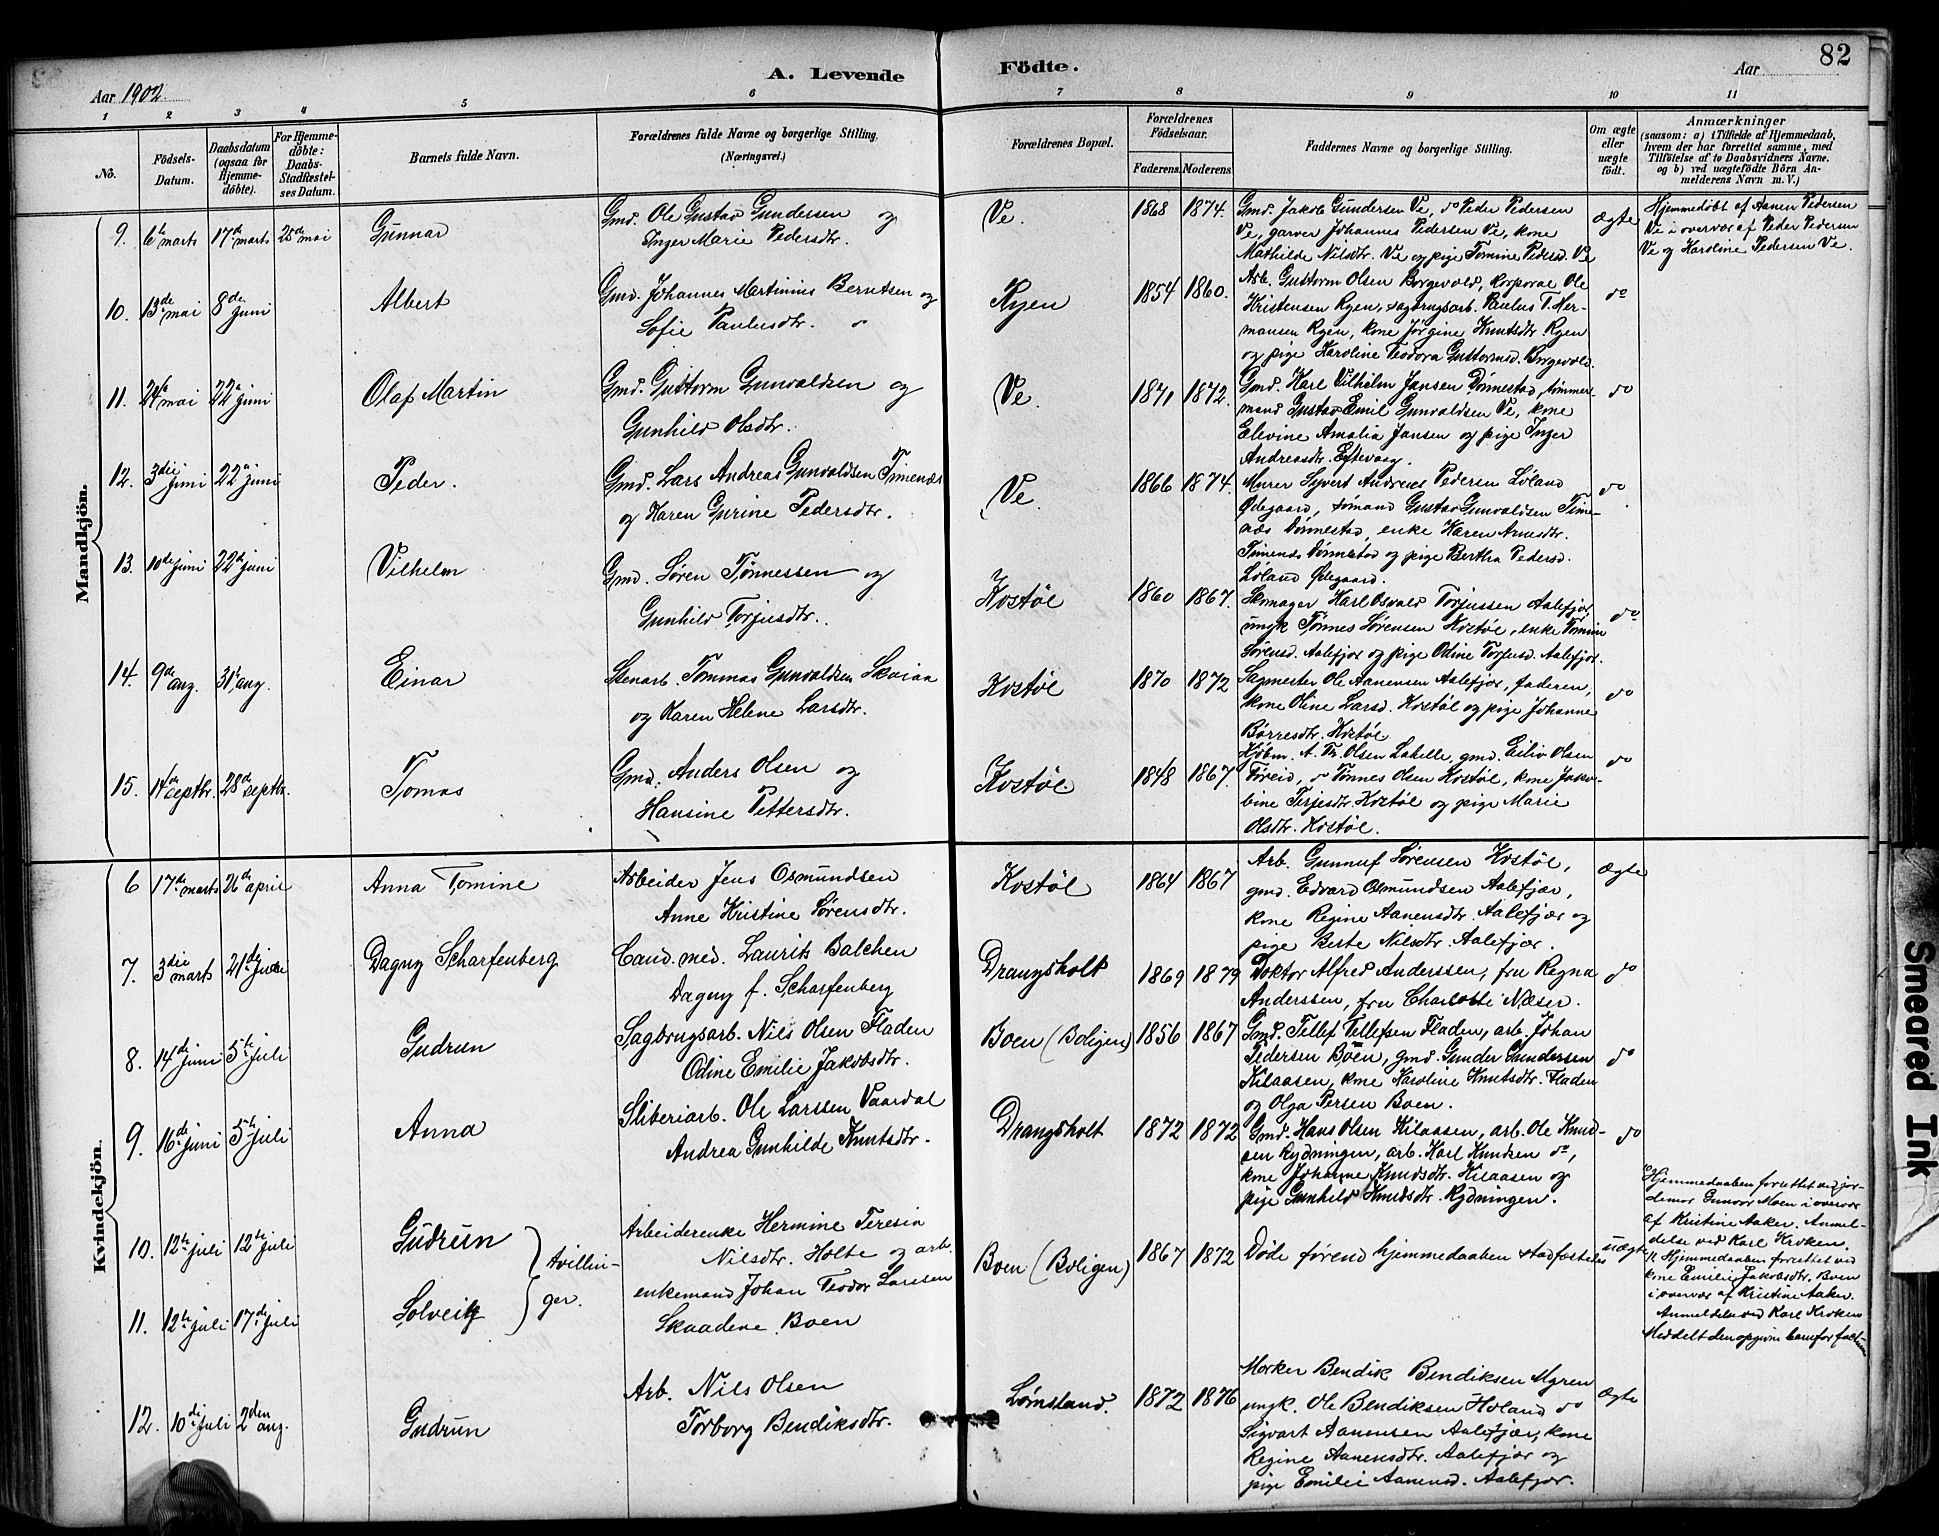 82
A. Levende Födte.
Aar 1902. Aar
1 2 3 4 5 6 7 8 9 10 11
No.
Födsels-Datum.
Daabsdatum (ogsaa for Hjemmedöbte).
For Hjemmedöbte: Daabs-Stadfæstelses Datum.
Barnets fulde Navn.
Forældrenes fulde Navne og borgerlige Stilling.
(Næringsvei.)
Forældrenes Bopæl.
Forældrenes Födselsaar.
Faderens. Moderens.
Faddernes Navne og borgerlige Stilling.
Om ægte eller uægte født.
Anmærkninger
(saasom: a) i Tilfælde af Hjemmedaab, hvem der har forrettet samme, med Tilföielse af to Daabsvidners Navne, og b) ved uægtefödte Börn Anmelderens Navn m. V.)
Mandkjön.
9. 6te marts 17de marts 25de mai Gunnar
Gmd. Ole Gustav Gundersen og
Inger Marie Pedersdtr.
Ve. 1868 1874.
Gmd. Jakob Gundersen Ve, do Peder Pedersen
Ve, garver Johannes Pedersen Ve, kone
Mathilde Nilsdtr. Ve og pige Tomine Pedersd. Ve
ægte
Hjemmedöbt af Aanen Pedersen
Ve i overvær af Peder Pedersen
Ve og Karoline Pedersen Ve.
10. 13de mai 8de juni Albert
Gmd. Johannes Martinius Berntsen og
Sofie Paulusdtr.
Ryen 1854 1860.
Arb. Guttorm Olsen Borgevold, korporal Ole
Kristensen Ryen, sagbrugsarb. Paulus T. Her-
mansen Ryen, kone Jörgine Knutsdtr. Ryen
og pige Karoline Teodora Guttormsd. Borgevold.
do
11. 24de mai 22de juni Olaf Martin
Gmd. Guttorm Gunvaldsen og
Gunhild Olsdtr.
Ve. 1871 1872.
Gmd. Karl Vilhelm Jansen Dønnestad, tömmer-
mand Gustav Emil Gunvaldsen Ve, kone
Elevine Amalia Jansen og pige Inger
Andreasdtr. Eftevaag.
do
12. 3die juni 22de juni Peder.
Gmd. Lars Andreas Gunvaldsen Timenæs
og Karen Gurine Pedersdtr.
Ve. 1866 1874.
Murer Syvert Andreas Pedersen Løland
Ødegaard, sømand Gustav Gunvaldsen Time-
næs Dønnestad, enke Karen Arnesdtr.
Timenæs Dønnestad og pige Bertha Pedersd.
Løland Ødegaard.
do
13. 10de juni 22de juni Vilhelm
Gmd. Søren Tønnessen og
Gunhild Torjusdtr.
Kostøl 1860 1867.
Skomager Karl Osvald Torjussen Aalefjær,
ungk Tønnes Sørensen Kostøl, enke Tomine
Sørensd. Aalefjær og pige Odine Torjusd. Aalefjær.
do
14. 9de aug. 31te aug. Einar
Stenarb. Tommas Gunvaldsen Skaiaa
og Karen Helene Larsdtr.
Kostøl 1870 1872
Sagmester Ole Aanensen Aalefjær, faderen,
kone Oline Larsd. Kostøl og pige Johanne
Börresdtr. Kostøl
do
15. 14de septbr. 28de septbr. Tomas
Gmd. Anders Olsen og
Hansine Pettersdtr.
Kostøl. 1848 1867.
Kjøbm. A. Th. Olsen Labelle, gmd. Eiliv Olsen
Føreid, do Tønnes Olsen Kostøl, kone Jako-
bine Terjesdtr. Kostøl og pige Marie
Olsdtr. Kostøl.
do
Kvindekjön.
6 17de marts 26de april Anna Tomine
Arbeider Jens Osmundsen
Anne Kristine Sørensdtr.
Kostøl 1864 1867
Arb. Gunnuf Sørensen Kostøl,
gmd. Edvard Osmundsen Aalefjær,
kone Regine Aanensdtr. Aalefjær og
pige Berte Nilsdtr. Aalefjær.
ægte
7. 3die marts 21de juni Dagny Scharfenberg
Cand. med. Laurits Balchen
Dagny f. Scharfenberg
Drangsholt 1869 1879
Doktor Alfred Anderssen, fru Regna
Anderssen, fru Charlotte Næser.
do
8. 14de juni 5te juli Gudrun
Sagbrugsarb. Nils Olsen Fladen
Odine Emilie Jakobsdtr.
Boen (Boligen) 1856 1867
Gmd. Tellef Tellefsen Fladen, arb. Johan
Pedersen Boen, gmd. Gunder Gundersen
Kilaasen, kone Karoline Knutsdtr. Fladen
og Olga Persen Boen.
do
9. 16de juni 5te juli Anna
Sliberiarb. Ole Larssen Vaardal
Andrea Gunhilde Knutsdtr.
Drangsholt 1872 1872
Gmd. Hans Olsen Kilaasen, arb. Ole Knud-
sen Rydningen, arb. Karl Knudsen do,
kone Johanne Knudsdtr. Kilaasen og
pige Gunhild Knudsdtr. Rydningen.
do
10. 12te juli 12te juli Gudrun
11. 12te juli 17de juli Solveig
tvillin-
ger.
Arbeiderenke Hermine Teresia
Nilsdtr. Holte og arb.
enkemand Johan Teodor Larssen
Skaadene Boen
Boen (Boligen) 1867 1872
Døde førend hjemmedaaben stadfæstedes
uægte
10 Hjemmedaaben forrettet ved jor-
demor Gunvor Moen i overvær
af Kristine Aaker. Anmel-
delse ved Karl Kroken.
11. Hjemmedaaben forrettet ved
kone Emilie Jakobsdtr. Boen
i overvær af Kristine Aaker.
Anmeldelse ved Karl Kroken
Meddelt den opgivne barnefar
12. 10de juli 2den aug. Gudrun
Arb. Nils Olsen
Torborg Bendiksdtr.
Lømsland. 1872 1876
Morker Bendik Bendiksen Myren
ungk. Ole Bendiksen Holand do
Sigvart Aanensen Aalefjær, kone
Regine Aanensdtr. Aalefjær og
pige Emilie Aanensd. Aalefjær.
ægte
Smeared Ink